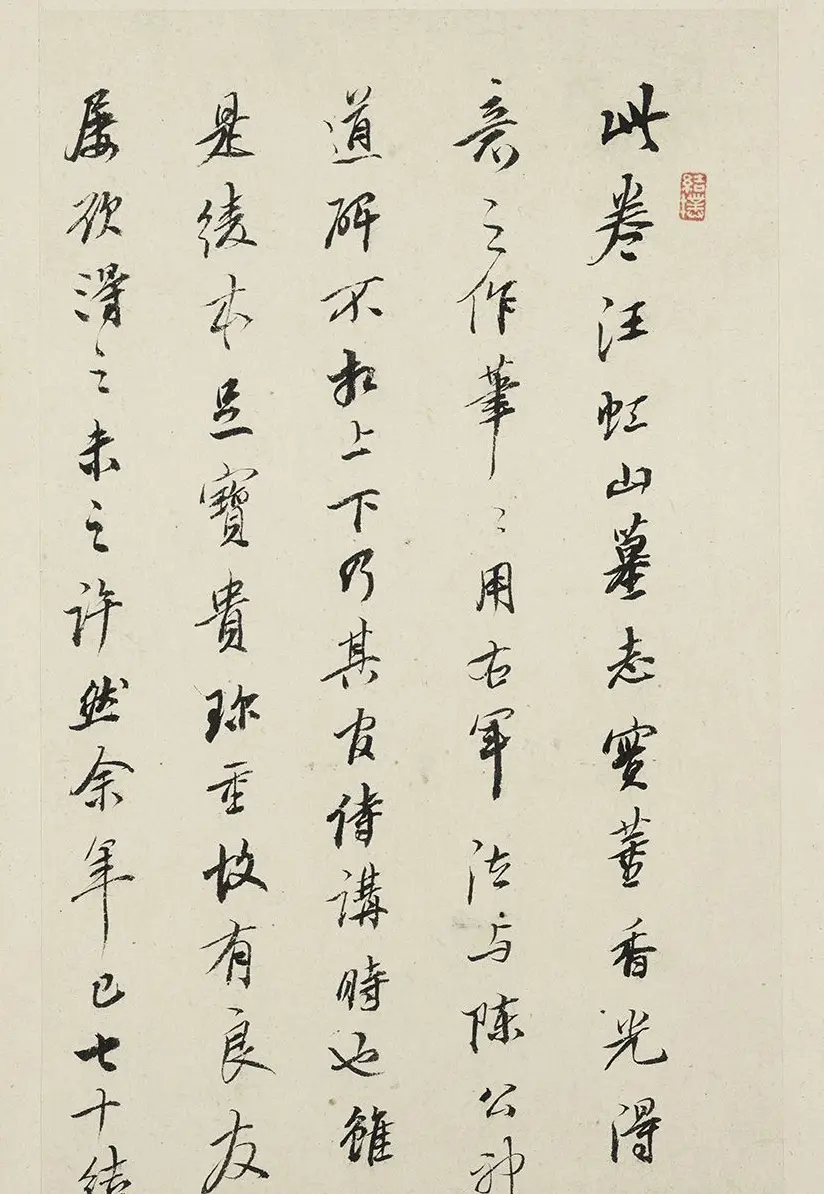 此卷汪虹山墓志實董香光得
意之作筆〻用右軍法与陈公神
道碑不相上下乃其官侍講時也雖
是綾本足寶貴珎重故有良友
屡欲得之未之许然余年已七十结